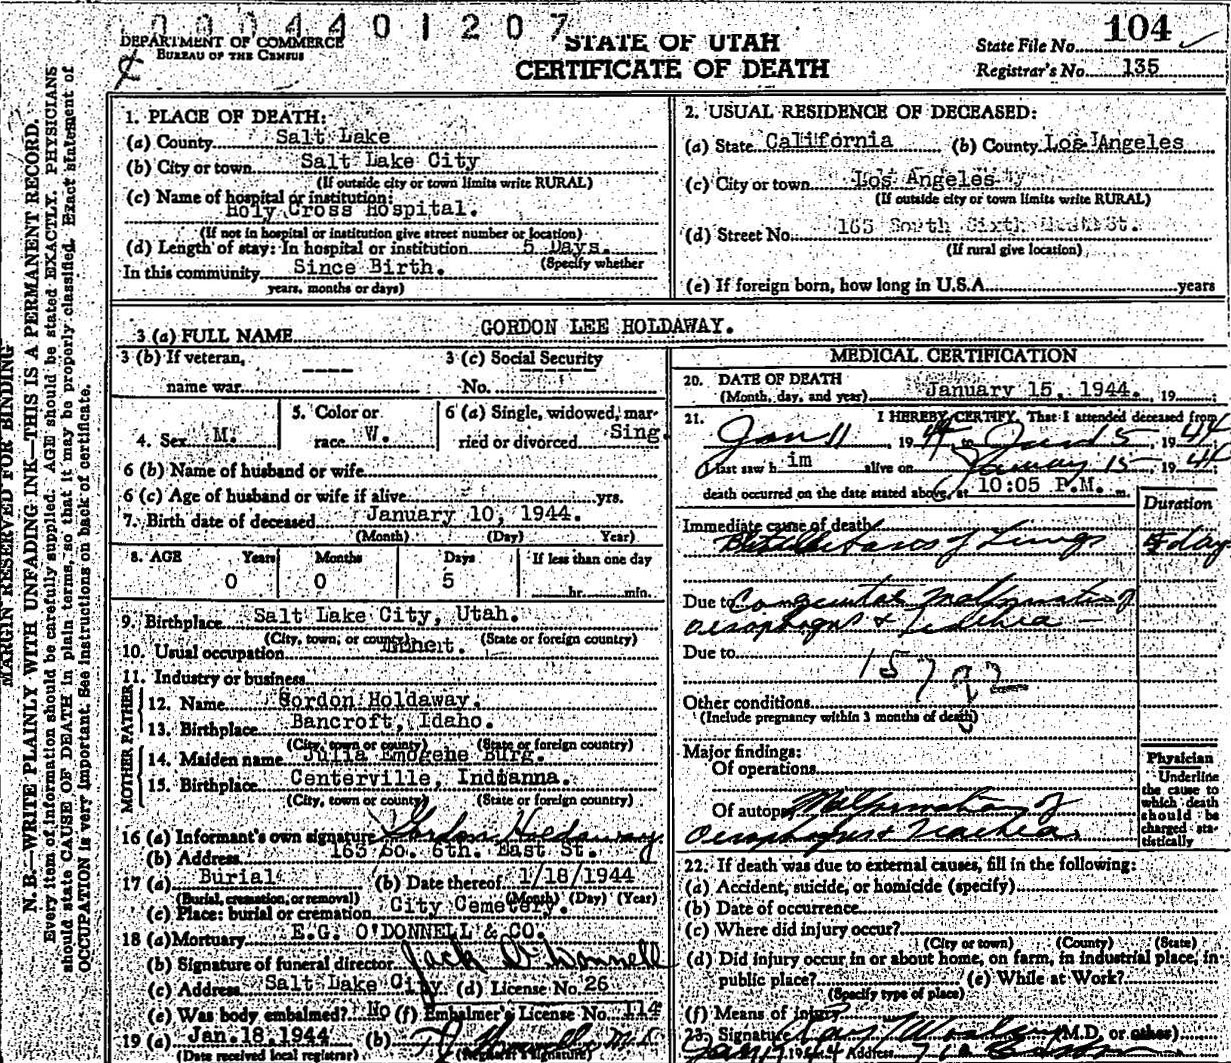 0004401207
DEPARTMENT OF COMMERCE
BUREAU OF THE CENSUS
STATE OF UTAH
CERTIFICATE OF DEATH
State File No. 104
Registrar's No. 135
MARGIN RESERVED FOR BINDING
N. B.—WRITE PLAINLY WITH UNFADING INK—THIS IS A PERMANENT RECORD.
Every item of information should be carefully supplied. AGE should be stated EXACTLY. PHYSICIANS
should state CAUSE OF DEATH in plain terms, so that it may be properly classified. Exact statement of
OCCUPATION is very important. See instructions on back of certificate.
1. PLACE OF DEATH:
(a) County Salt Lake
(b) City or town Salt Lake City
(If outside city or town limits write RURAL)
(c) Name of hospital or institution:
Holy Cross Hospital.
(If not in hospital or institution give street number or location)
(d) Length of stay: In hospital or institution 5 Days.
(Specify whether
In this community Since Birth.
years, months or days)
2. USUAL RESIDENCE OF DECEASED:
(a) State California (b) County Los Angeles
(c) City or town Los Angeles
(If outside city or town limits write RURAL)
(d) Street No. 165 South Sixth East St.
(If rural give location)
(e) If foreign born, how long in U.S.A. years
3 (a) FULL NAME GORDON LEE HOLDAWAY.
3 (b) If veteran, 3 (c) Social Security
name war ---- No. ------
4. Sex M. 5. Color or race W. 6 (a) Single, widowed, married or divorced Sing.
6 (b) Name of husband or wife
6 (c) Age of husband or wife if alive yrs.
7. Birth date of deceased January 10, 1944.
(Month) (Day) Year)
8. AGE Years Months Days If less than one day
0 0 5 hr. min.
9. Birthplace Salt Lake City, Utah.
(City, town, or county) (State or foreign country)
10. Usual occupation
11. Industry or business
FATHER
12. Name Gordon Holdaway.
13. Birthplace Bancroft, Idaho.
(City, town or county) (State or foreign country)
MOTHER
14. Maiden name Julia Emogene Burg.
15. Birthplace Centerville, Indianna.
(City, town or county) (State or foreign country)
16 (a) Informant's own signature Gordon Holdaway
(b) Address 165 So. 6th. East St.
17 (a) Burial (b) Date thereof 1/18/1944
(Burial, cremation, or removal) (Month) (Day) (Year)
(c) Place: burial or cremation City Cemetery.
18 (a) Mortuary E.G. O'DONNELL & CO.
(b) Signature of funeral director Jack O'Donnell
(c) Address Salt Lake City (d) License No. 26
(e) Was body embalmed? No (f) Embalmer's License No. 114
19 (a) Jan. 18, 1944 (b)
(Date received local registrar) (Registrar's signature)
MEDICAL CERTIFICATION
20. DATE OF DEATH
(Month, day, and year) January 15, 1944. , 19
21. I HEREBY CERTIFY, That I attended deceased from
Jan 11 1944 to Jan 15, 1944
I last saw him alive on January 15, 1944
death occurred on the date stated above, at 10:05 P.M. m.
Duration
Immediate cause of death
of Lungs day
Due to Congenital malformation of
oesophagus & trachea —
Due to
157
Other conditions
(Include pregnancy within 3 months of death)
Major findings:
Of operations
Of autopsy Malformation of
oesophagus & trachea.
Physician
Underline
the cause to
which death
should be
charged sta-
tistically
22. If death was due to external causes, fill in the following:
(a) Accident, suicide, or homicide (specify)
(b) Date of occurrence
(c) Where did injury occur?
(City or town) (County) (State)
(d) Did injury occur in or about home, on farm, in industrial place, in
public place? (e) While at Work?
(Specify type of place)
(f) Means of injury
23. Signature (M.D. or other)
1944 Address